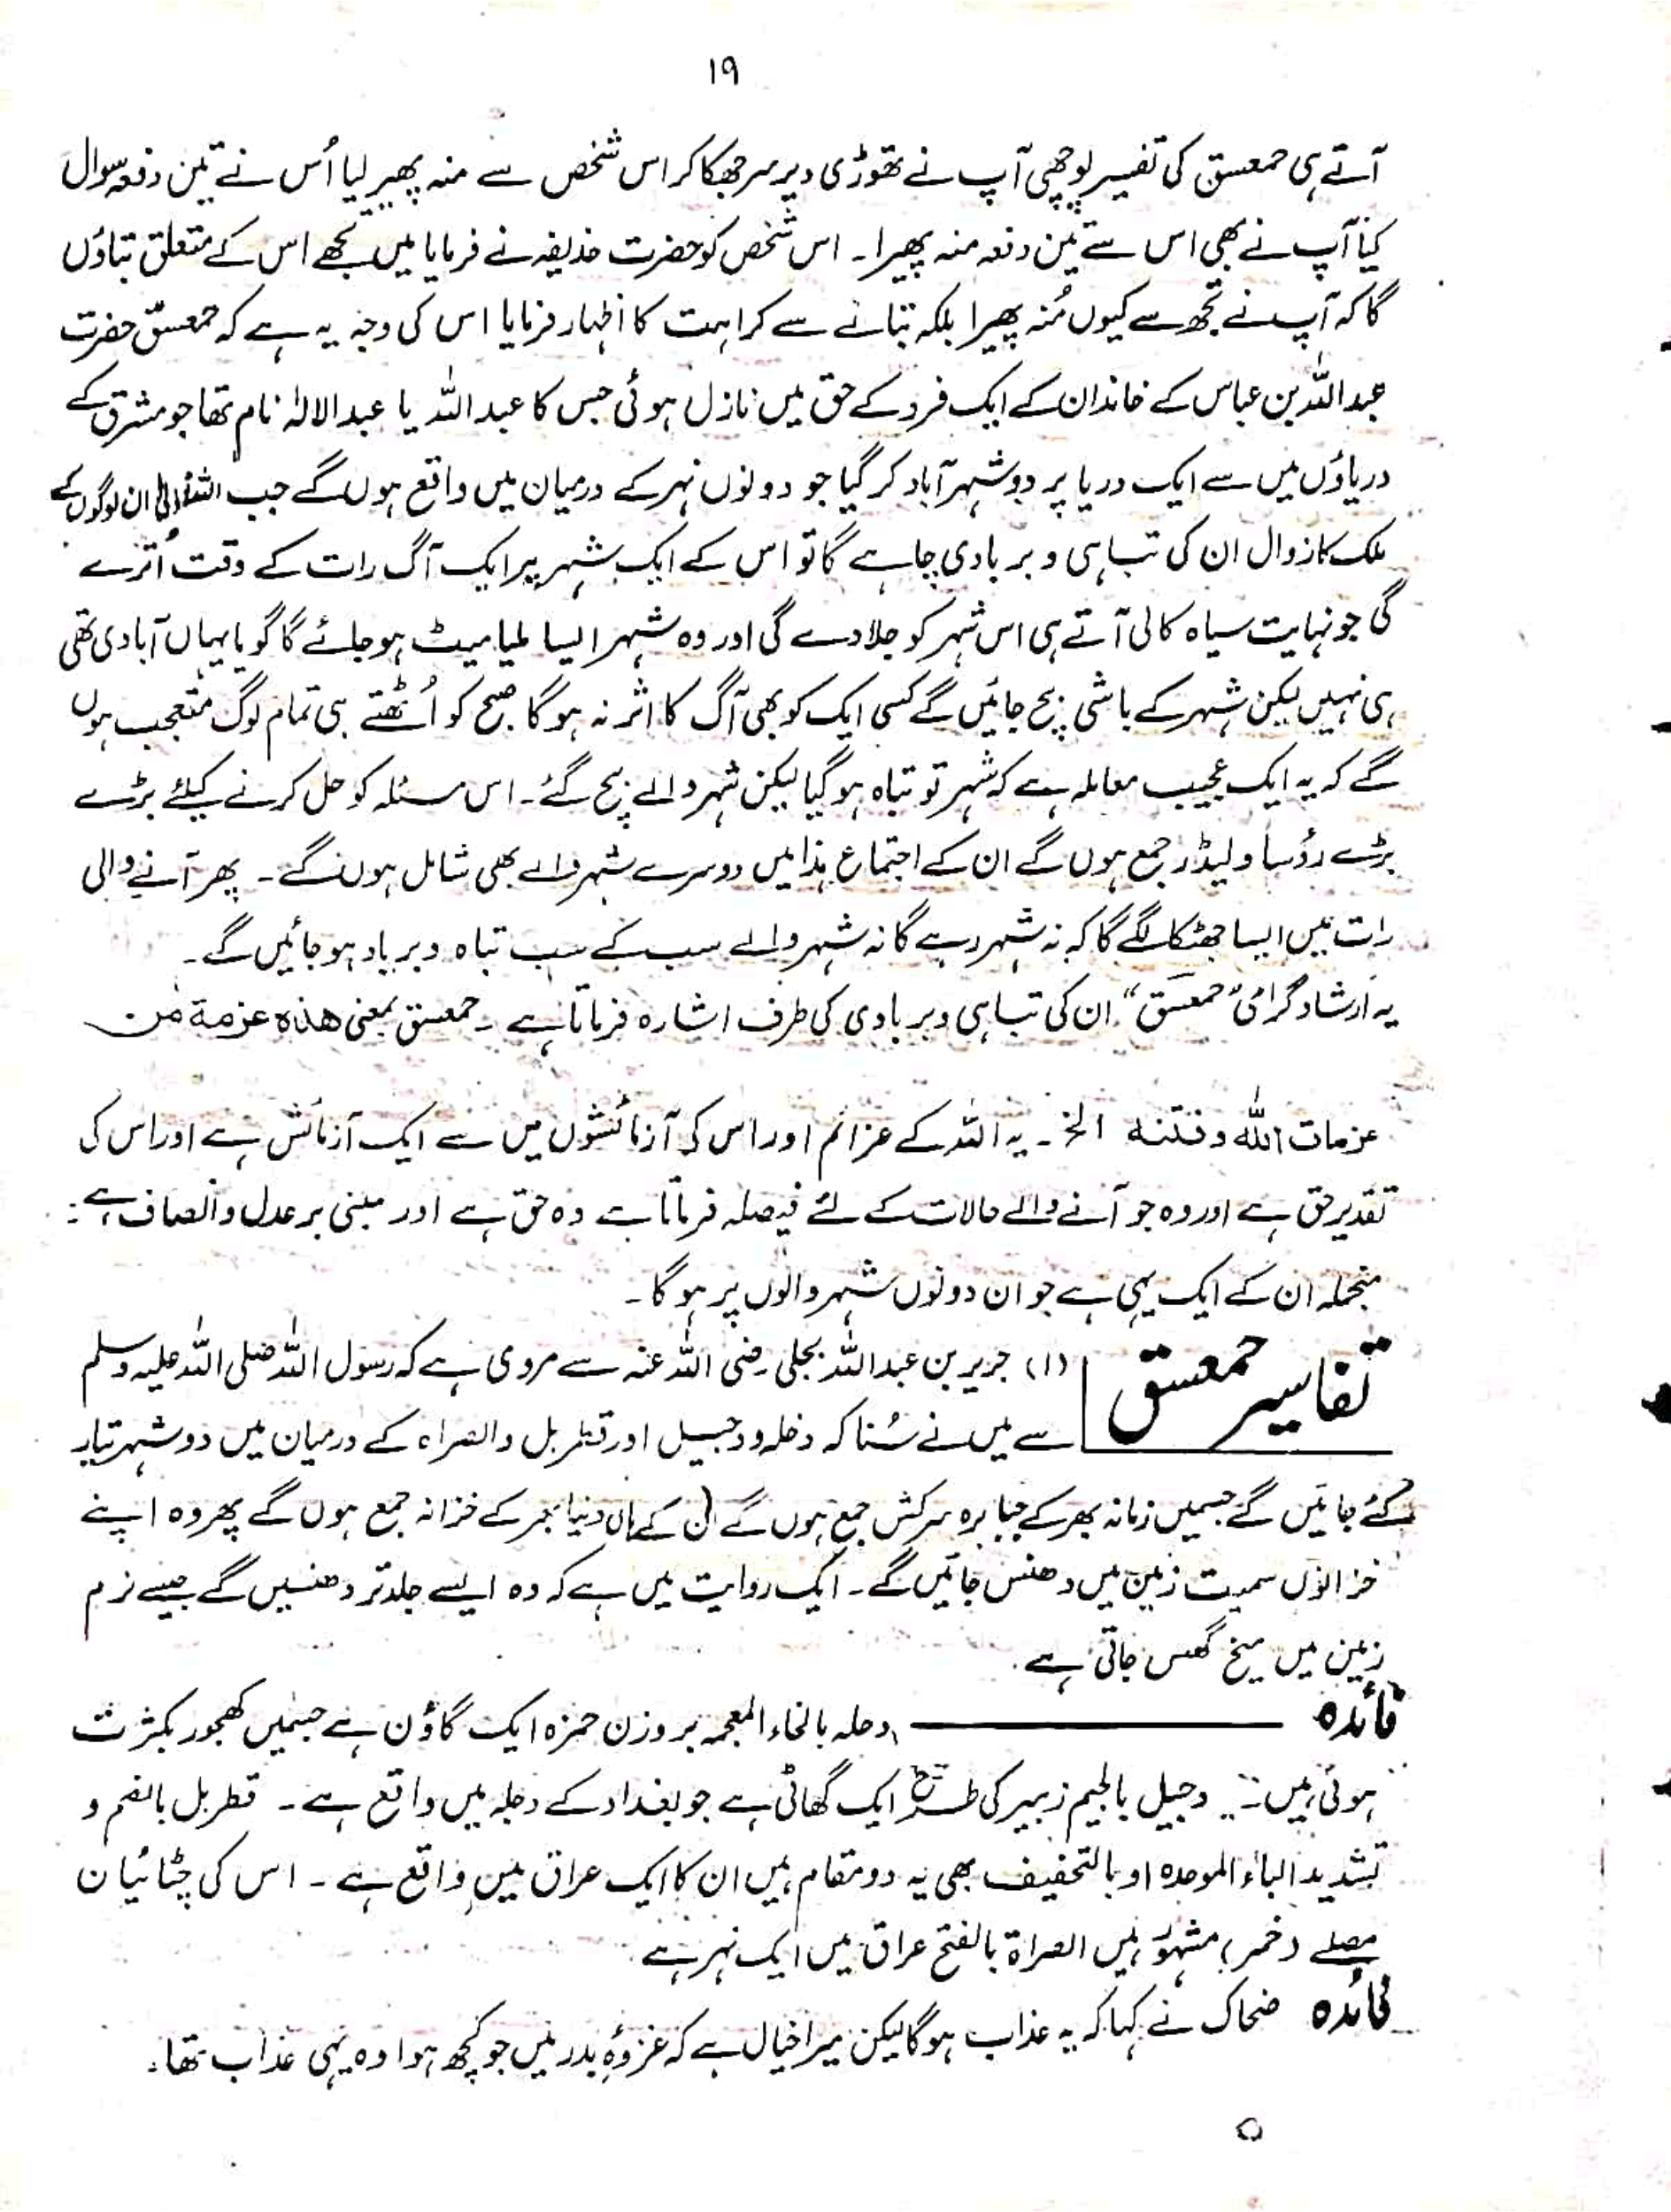 ۱۹
آتے ہی حمعسق کی تفسیر پوچھی آپ نے تھوڑی دیر سر جھکا کر اس شخص سے منہ پھیر لیا اُس نے تین دفعہ سوال
کیا آپ نے بھی اس سے تین دفعہ منہ پھیرا۔ اس شخص کو حضرت حذیفہ نے فرمایا میں تجھے اس کے متعلق بتاؤں
گا کہ آپ نے تجھ سے کیوں مُنہ پھیرا بلکہ بتانے سے کراہت کا اظہار فرمایا اس کی وجہ یہ ہے کہ حمعسق حضرت
عبداللہ بن عباس کے خاندان کے ایک فرد کے حق میں نازل ہوئی جس کا عبداللہ یا عبدالالٰہ نام تھا جو مشرق کے
دریاؤں میں سے ایک دریا پر دو شہر آباد کر گیا جو دونوں نہر کے درمیان میں واقع ہوں گے جب اللہ تعالیٰ ان لوگوں کے
ملک کا زوال ان کی تباہی و بربادی چاہے گا تو اس کے ایک شہر پر ایک آگ رات کے وقت اُترے
گی جو نہایت سیاہ کالی آتے ہی اس شہر کو جلا دے گی اور وہ شہر ایسا ملیا میٹ ہو جائے گا گویا یہاں آبادی تھی
ہی نہیں لیکن شہر کے باشی بچ جائیں گے کسی ایک کو بھی آگ کا اثر نہ ہوگا صبح کو اُٹھتے ہی تمام لوگ متعجب ہوں
گے کہ یہ ایک عجیب معاملہ ہے کہ شہر تو تباہ ہو گیا لیکن شہر والے بچ گئے۔ اس مسئلہ کو حل کرنے کیلئے بڑے
بڑے رؤسا و لیڈر جمع ہوں گے ان کے اجتماع ہذا میں دوسرے شہر والے بھی شامل ہوں گے۔ پھر آنے والی
رات میں ایسا جھٹکا لگے گا کہ نہ شہر رہے گا نہ شہر والے سب کے سب تباہ و برباد ہو جائیں گے۔
یہ ارشاد گرامی ”حمعسق“ ان کی تباہی و بربادی کی طرف اشارہ فرماتا ہے۔ حمعسق بمعنی ھذہ عزمة من
عزمات اللہ وفتنہ الخ۔ یہ اللہ کے عزائم اور اس کی آزمائشوں میں سے ایک آزمائش ہے اور اس کی
تقدیر حق ہے اور وہ جو آنے والے حالات کے لئے فیصلہ فرماتا ہے وہ حق ہے اور مبنی بر عدل و انصاف ہے:
منجملہ ان کے ایک یہی ہے جو ان دونوں شہر والوں پر ہوگا۔
تفاسیر حمعسق
(۱) جریر بن عبداللہ بجلی رضی اللہ عنہ سے مروی ہے کہ رسول اللہ صلی اللہ علیہ وسلم
سے میں نے سُنا کہ دخلہ و دجیل اور قطربل و الصراہ کے درمیان میں دو شہر تیار
کئے جائیں گے جسمیں زمانہ بھر کے جبابرہ سرکش جمع ہوں گے ان کے ہاں دنیا بھر کے خزانہ جمع ہوں گے پھر وہ اپنے
خزانوں سمیت زمین میں دھنس جائیں گے۔ ایک روایت میں ہے کہ وہ ایسے جلد تر دھنسیں گے جیسے نرم
زمین میں میخ گھس جاتی ہے۔
فائدہ ــــــــــ دخلہ بالخاء المعجمہ بروزن حمزہ ایک گاؤں ہے جسمیں کھجور بکثرت
ہوتی ہیں۔ دجیل بالجیم زبیر کی طرح ایک گھاٹی ہے جو بغداد کے دجلہ میں واقع ہے۔ قطربل بالضم و
تشدید الباء الموحدہ او بالتخفیف بھی یہ دو مقام ہیں ان کا ایک عراق میں واقع ہے۔ اس کی چٹائیان
مصلے (خمر) مشہور ہیں الصراة بالفتح عراق میں ایک نہر ہے
فائدہ ضحاک نے کہا کہ یہ عذاب ہوگا لیکن میرا خیال ہے کہ غزوۂ بدر میں جو کچھ ہوا وہ یہی عذاب تھا۔